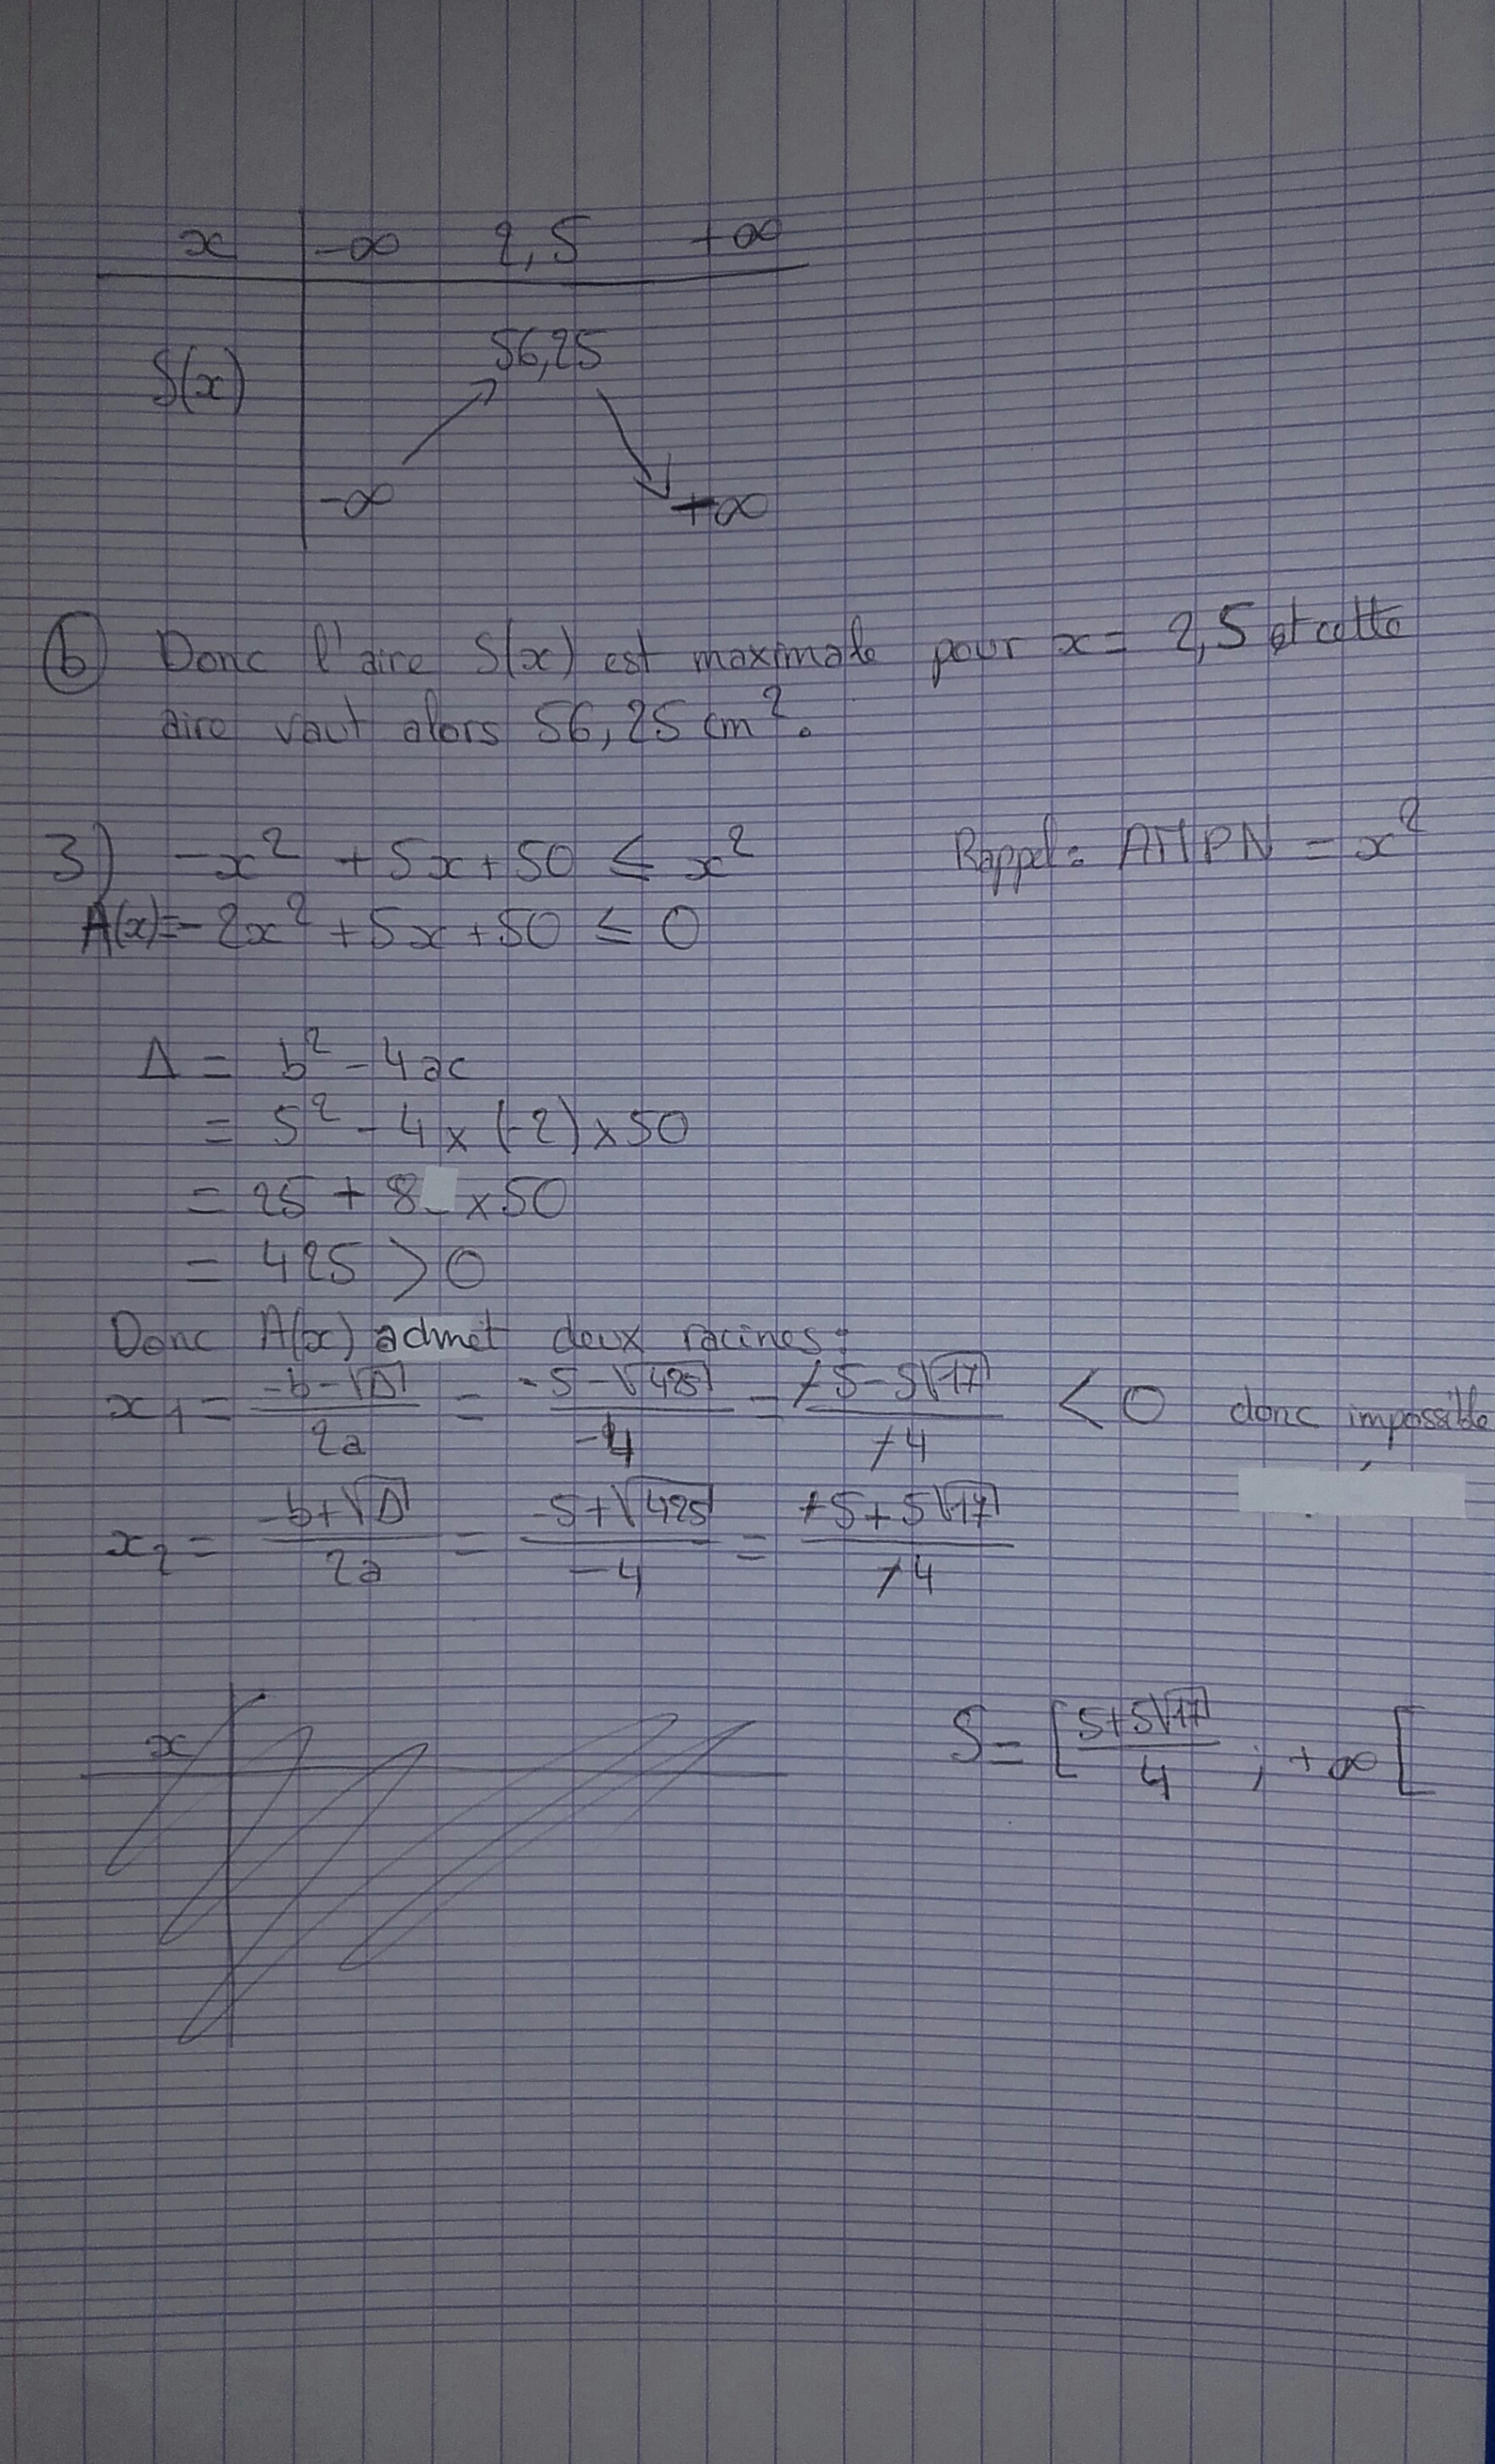 x -∞ 2,5 +∞
56,25
S(x)
-∞ +∞
(b) Donc l'aire S(x) est maximale pour x = 2,5 et cette
aire vaut alors 56,25 cm².
3) -x² + 5x + 50 ≤ x² Rappel : AMPN = x²
A(x) = -2x² + 5x + 50 ≤ 0
Δ = b² - 4ac
= 5² - 4 × (-2) × 50
= 25 + 8 × 50
= 425 > 0
Donc A(x) admet deux racines :
x₁ = (-b-√Δ)/2a = (-5-√425)/-4 = (+5-5√17)/+4 < 0 donc impossible
x₂ = (-b+√Δ)/2a = (-5+√425)/-4 = (+5+5√17)/+4
x S = [(5+5√17)/4 ; +∞[